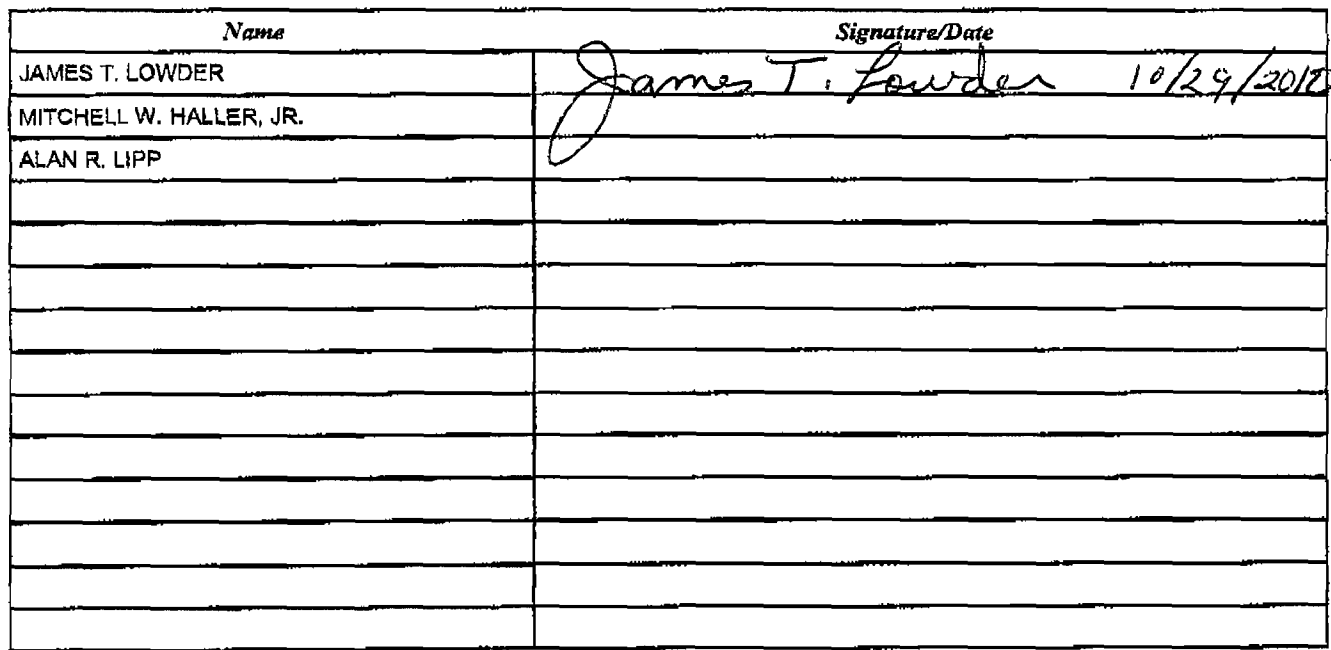 Name Signature/Date
JAMES T. LOWDER James T. Lowder 10/29/2012
MITCHELL W. HALLER, JR.
ALAN R. LIPP